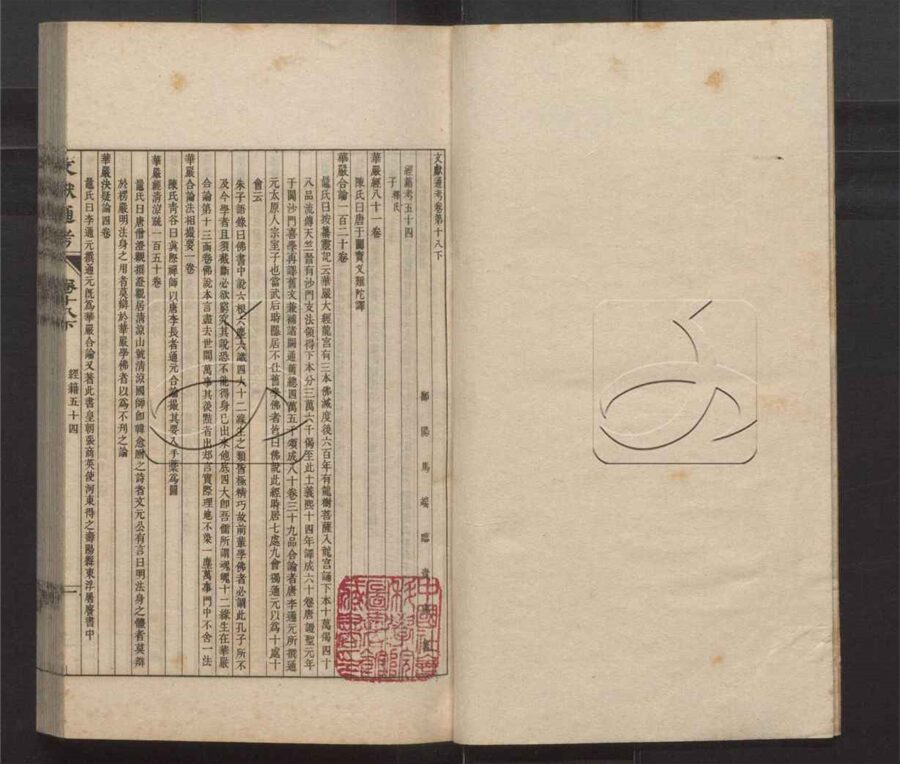 文獻通考卷第十八下
鄱陽馬端臨貴
經籍考五十四
子 釋氏
華嚴經八十一卷
陳氏曰唐于闐實叉難陀譯
華嚴合論一百二十卷
鼂氏曰按纂靈記云華嚴大經龍宮有三本佛滅度後六百年有龍樹菩薩入龍宮誦下本十萬偈四十
八品流傳天竺晉有沙門支法領得下本分三萬六千偈至此土義熙十四年譯成六十卷唐證聖元年
于闐沙門喜學再譯舊文兼補諸闕通舊總四萬五千頌成八十卷三十九品合論者唐李通元所撰通
元太原人宗室子也當武后時隱居不仕舊學佛者皆曰佛說此經時居七處九會獨通元以爲十處十
會云
朱子語錄曰佛書中說六根六塵六識四大十二緣生之類皆極精巧故前輩學佛者必謂此孔子所不
及今學者且須截斷必欲窮究其說恐不能得身己出來他底四大即吾儒所謂魂魄十二緣生在華嚴
合論第十三卷佛說本言盡去世間萬事其後黠者出却言實際理地不染一塵萬事門中不舍一法
華嚴合論法相撮要一卷
陳氏曰眞際禪師以唐李長者通元合論撮其要入手藁爲圖
華嚴經清涼疏一百五十卷
鼂氏曰唐僧澄觀撰澄觀居清涼山號清涼國師即韓愈贈之詩者文元公有言曰明法身之體者莫辯
於楞嚴明法身之用者莫辯於華嚴學佛者以爲不刊之論
華嚴決疑論四卷
鼂氏曰李通元撰通元既爲華嚴合論又著此書皇朝張商英使河東得之壽陽縣東浮屠廢書中
文獻通考
卷十八下
經籍五十四
一
中國社會
科學院
圖書館
藏書章